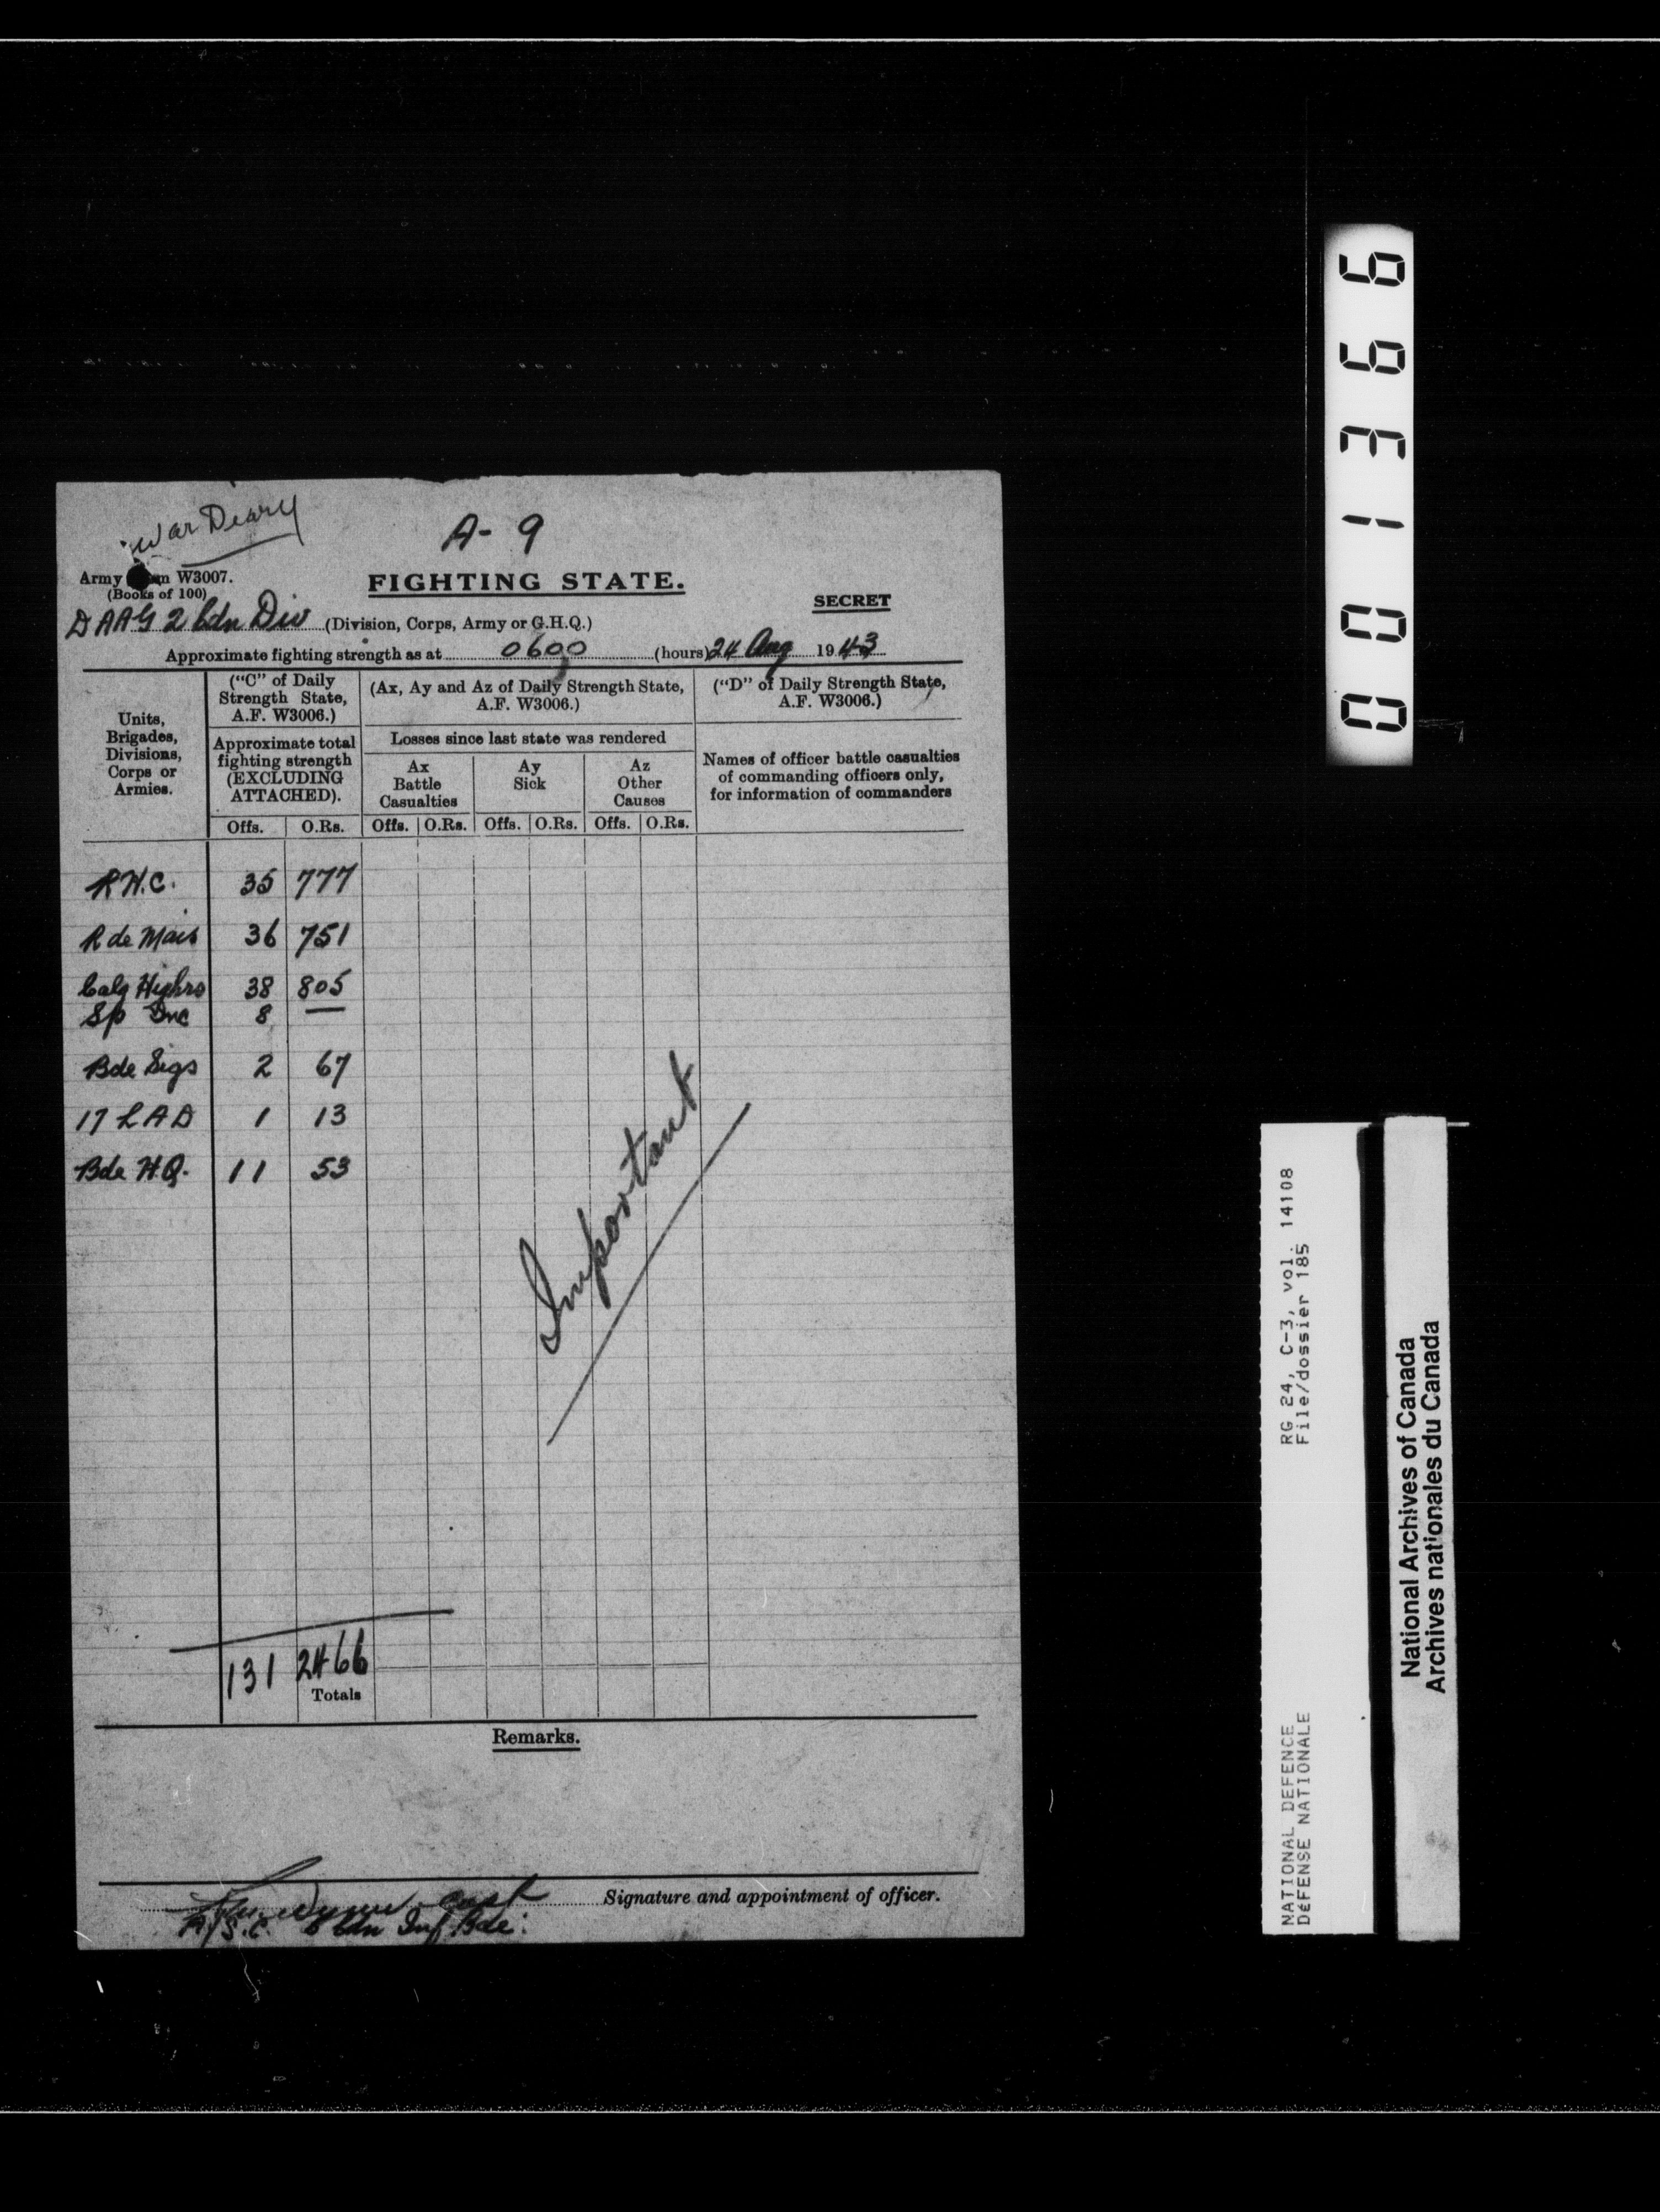 War Diary
A-9
Army Form W3007.
(Books of 100)
FIGHTING STATE.
SECRET
DAAG 2 Cdn Div (Division, Corps, Army or G.H.Q.)
Approximate fighting strength as at 0600 (hours) 24 Aug 1943
Units, Brigades, Divisions, Corps or Armies.
("C" of Daily Strength State, A.F. W3006.)
Approximate total fighting strength (EXCLUDING ATTACHED).
(Ax, Ay and Az of Daily Strength State, A.F. W3006.)
Losses since last state was rendered
Ax Battle Casualties
Ay Sick
Az Other Causes
("D" of Daily Strength State, A.F. W3006.)
Names of officer battle casualties of commanding officers only, for information of commanders
Offs. O.Rs. Offs. O.Rs. Offs. O.Rs. Offs. O.Rs.
R.H.C. 35 777
R de Mais 36 751
Calg Highrs 38 805
Sp Inc 8 —
Bde Sigs 2 67
17 LAD 1 13
Bde H.Q. 11 53
Important
131 2466
Totals
Remarks.
Capt
Signature and appointment of officer.
A/S.C. Cdn Inf Bde.
001366
RG 24, C-3, vol. 14108
File/dossier 185
NATIONAL DEFENCE
DÉFENSE NATIONALE
National Archives of Canada
Archives nationales du Canada